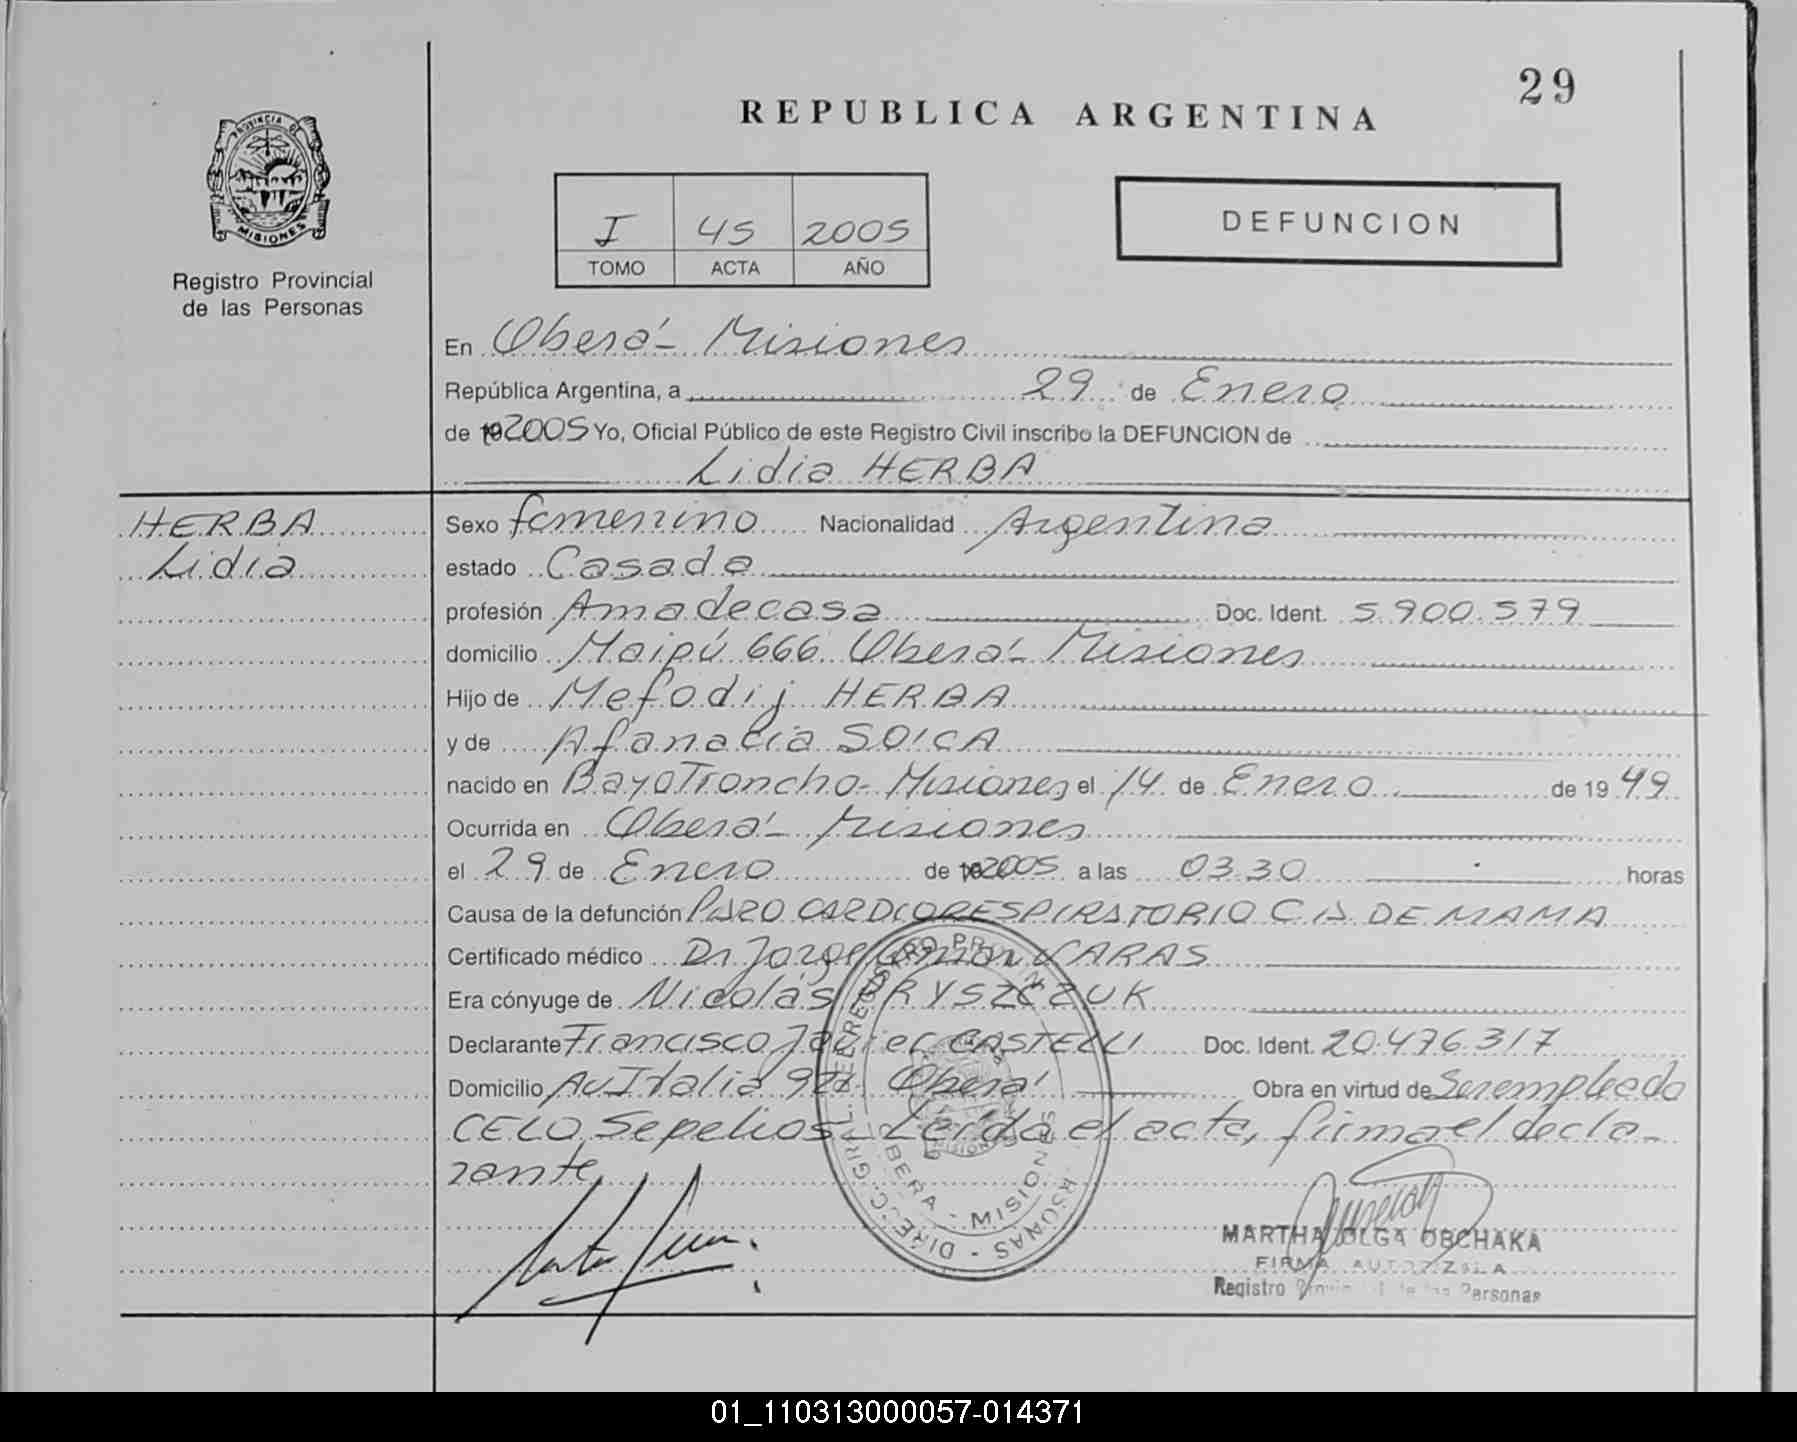 29
REPUBLICA ARGENTINA
PROVINCIA DE
MISIONES
Registro Provincial
de las Personas
I 45 2005
TOMO ACTA AÑO
DEFUNCION
En Oberá - Misiones
República Argentina, a 29 de Enero
de 19 2005 Yo, Oficial Público de este Registro Civil inscribo la DEFUNCION de
Lidia HERBA
HERBA
Lidia
Sexo femenino Nacionalidad Argentina
estado Casada
profesión Amadecasa Doc. Ident. 5.900.579
domicilio Maipú 666 Oberá - Misiones
Hijo de Mefodij HERBA
y de Afanacia SOICA
nacido en BayoTroncho - Misiones el 14 de Enero de 19 49
Ocurrida en Oberá - Misiones
el 29 de Enero de 19 2005 a las 03.30 horas
Causa de la defunción PARO CARDIORESPIRATORIO CA DE MAMA
Certificado médico Dr Jorge CARAS
Era cónyuge de Nicolás
Declarante Francisco Javier CASTELLI Doc. Ident. 20.476.317
Domicilio Av Italia Oberá Obra en virtud de Ser empleado
CELO Sepelios - Leída el acta, firma el decla-
rante
OBERA - MISIONES
MARTHA OLGA OBCHAKA
FIRMA AUTORIZADA
Registro Provincial de las Personas
01_110313000057-014371